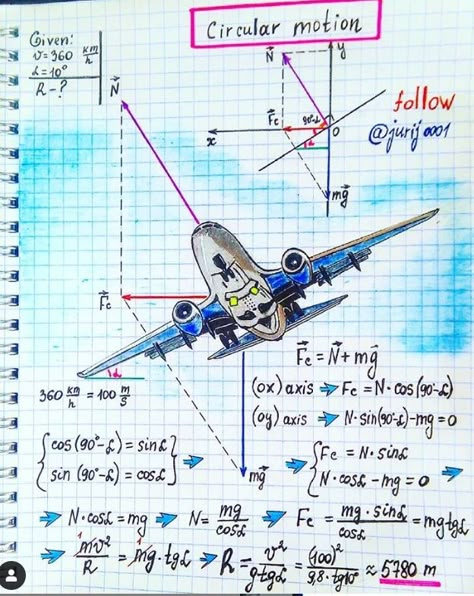 Circular motion
Given:
v=360 km/h
α=10°
R-?
N⃗
N⃗
y
F⃗c
90°-α
O
x
α
mg⃗
follow
@jurij0001
F⃗c
α
360 km/h = 100 m/s
mg⃗
F⃗c = N⃗ + mg⃗
(ox) axis ⇒ Fc = N·cos(90-α)
(oy) axis ⇒ N·sin(90-α)-mg=0
{cos(90°-α) = sinα
sin(90°-α) = cosα} ⇒
⇒ {Fc = N·sinα
N·cosα - mg = 0 ⇒
⇒ N·cosα = mg ⇒ N = mg/cosα ⇒ Fc = mg·sinα/cosα = mg tgα
⇒ mv²/R = mg·tgα ⇒ R = v²/g tgα = (100)²/9,8·tg10° ≈ 5780 m